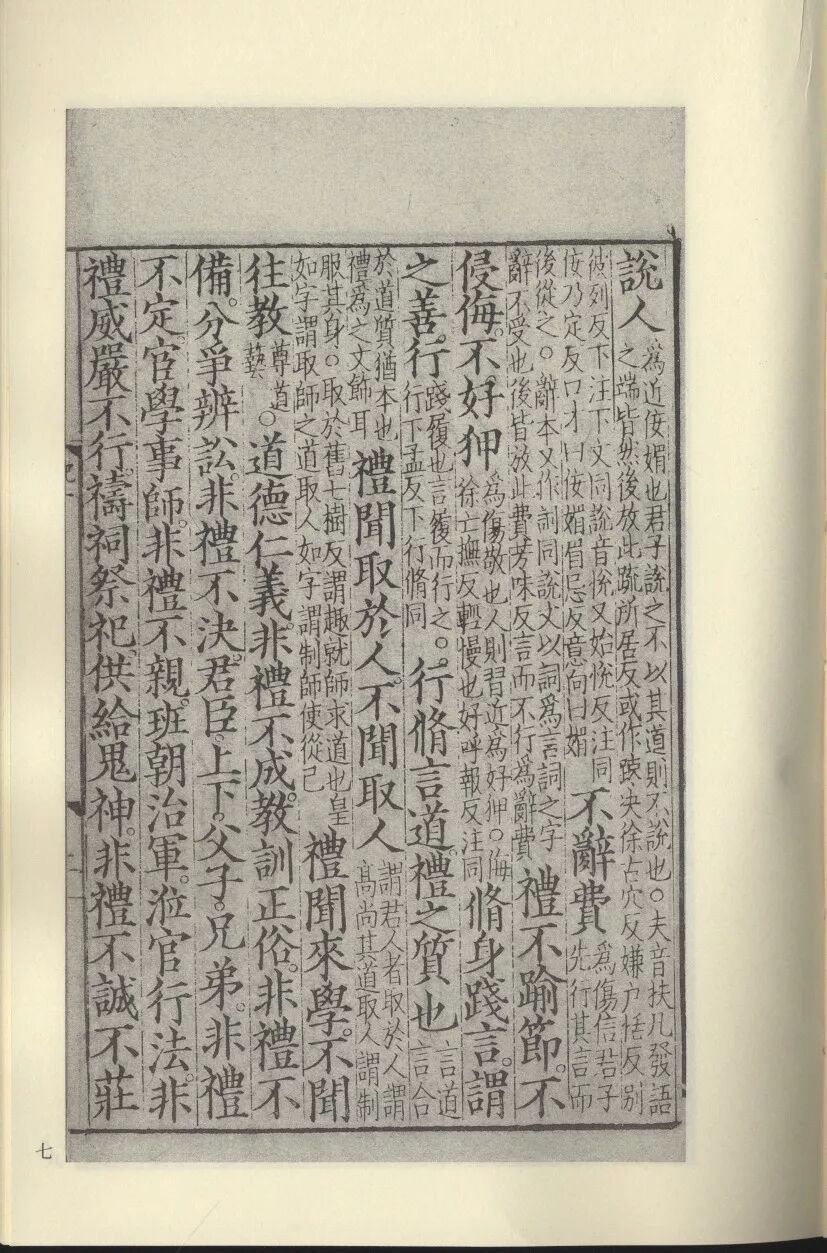 說人爲近佞媚也君子說之不以其道則不說也。夫音扶凡發語之端皆然後放此疏所居反或作踈決徐古穴反嫌户恬反别
彼列反下注下文同說音悅又始悅反注同佞乃定反口才曰佞媚眉忌反意向曰媚不辭費爲傷信君子先行其言而
後從之。辭本又作詞同說文以詞爲言詞之字辭不受也後皆放此費芳味反言而不行爲辭費禮不踰節。不
侵侮。不好狎爲傷敬也人則習近爲好狎。侮徐亡撫反輕慢也好呼報反注同脩身踐言。謂
之善。行踐履也言履而行之。行下孟反下行脩同。行脩言道。禮之質也言道言合
於道質猶本也禮爲之文飾耳禮聞取於人。不聞取人謂君人者取於人謂高尚其道取人謂制
服其身。取於舊七樹反謂趣就師求道也皇如字謂取師之道取人如字謂制師使從己禮聞來學。不聞
往教尊道藝。道德仁義。非禮不成。教訓正俗。非禮不
備。分爭辨訟。非禮不決。君臣。上下。父子。兄弟。非禮
不定。宦學事師。非禮不親。班朝治軍。涖官行法。非
禮威嚴不行。禱祠祭祀。供給鬼神。非禮不誠不莊
七